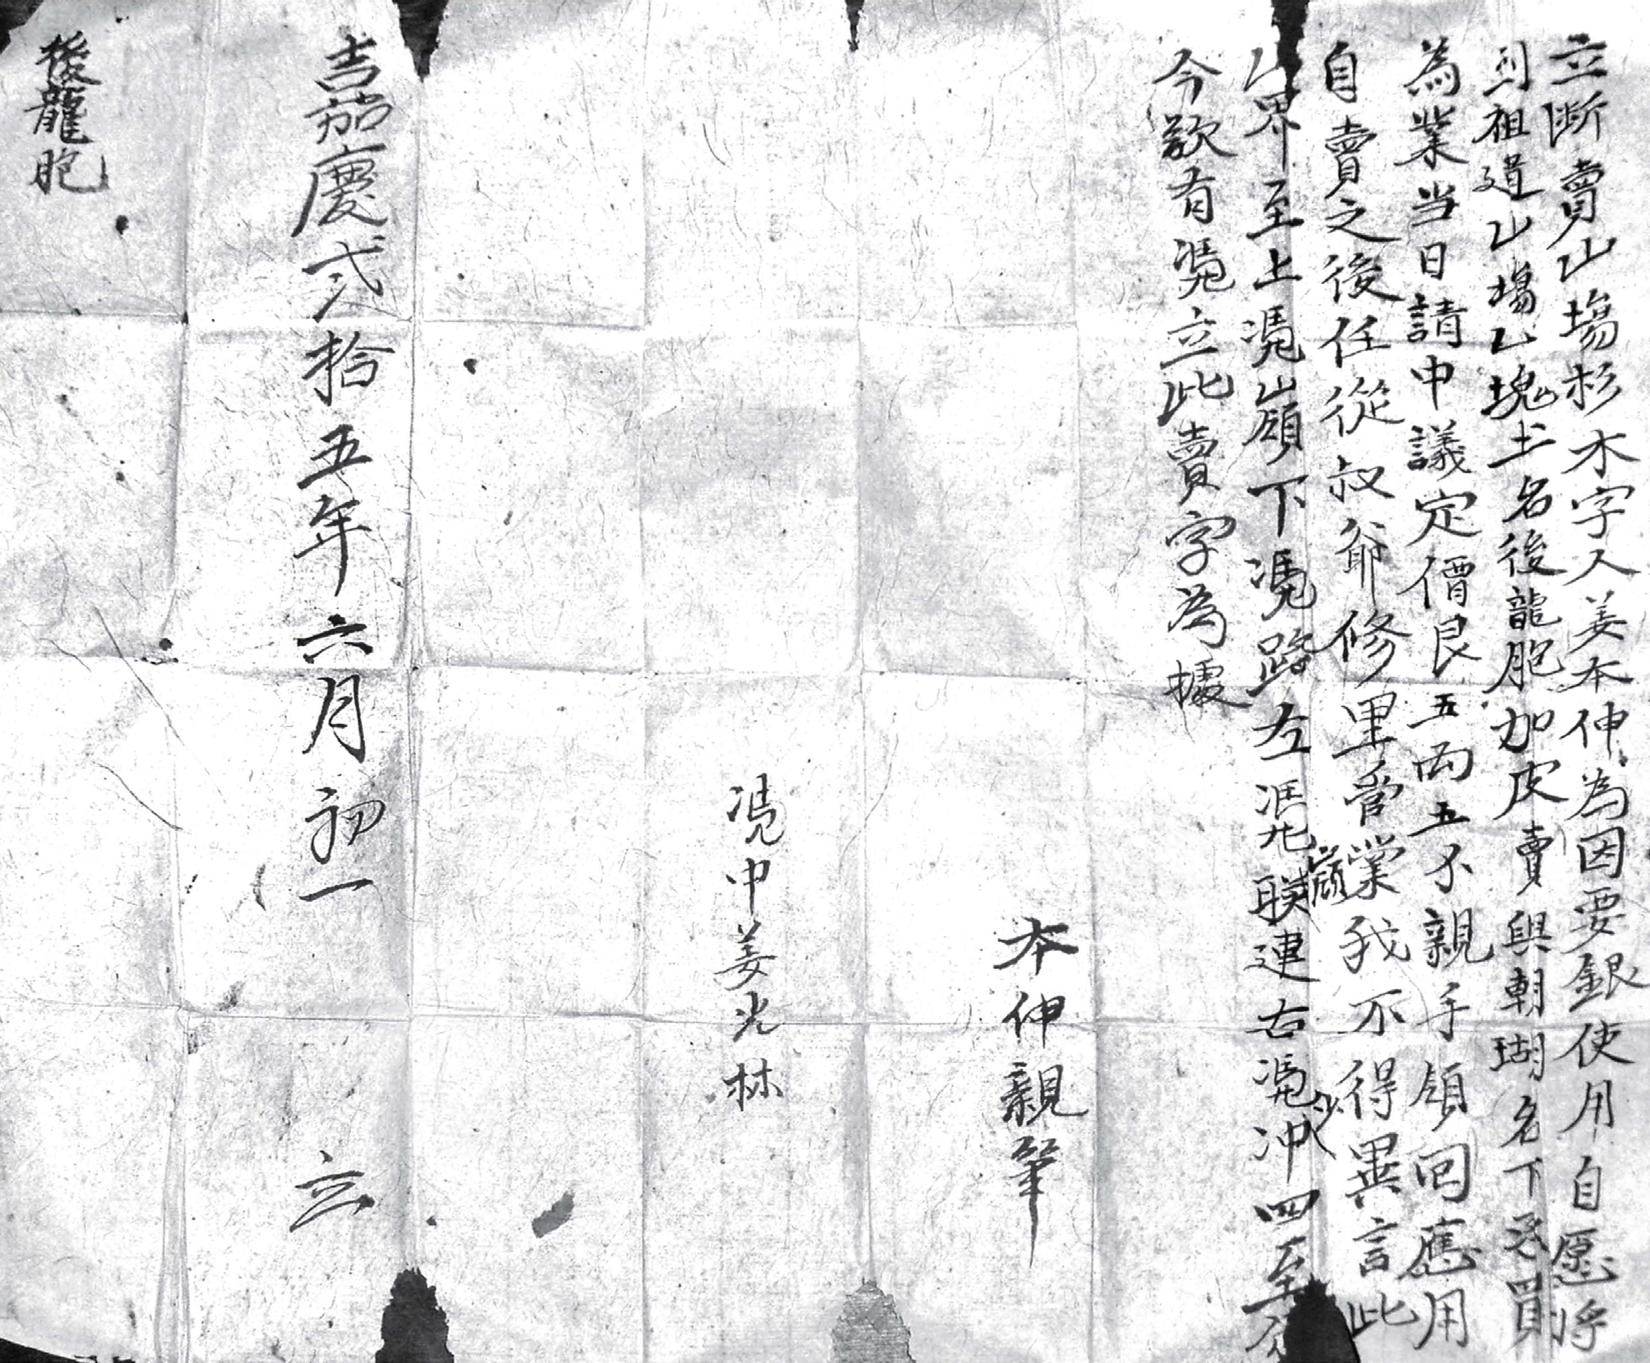 立斷賣山塲杉木字人姜本伸為因要銀使用自愿将
到祖遺山塲乙塊土名後龍胞加皮賣與朝瑚名下承買
為業当日請中議定價艮五両五不親手領回應用
自賣之後任從叔爺修里管業我不得異言此
山界至上凴嶺下凴路左凴联連嶺右凴冲沙四至分
今欲有凴立此賣字為據
本伸親筆
凴中姜光林
嘉慶弍拾五年六月初一 立
後龍胞